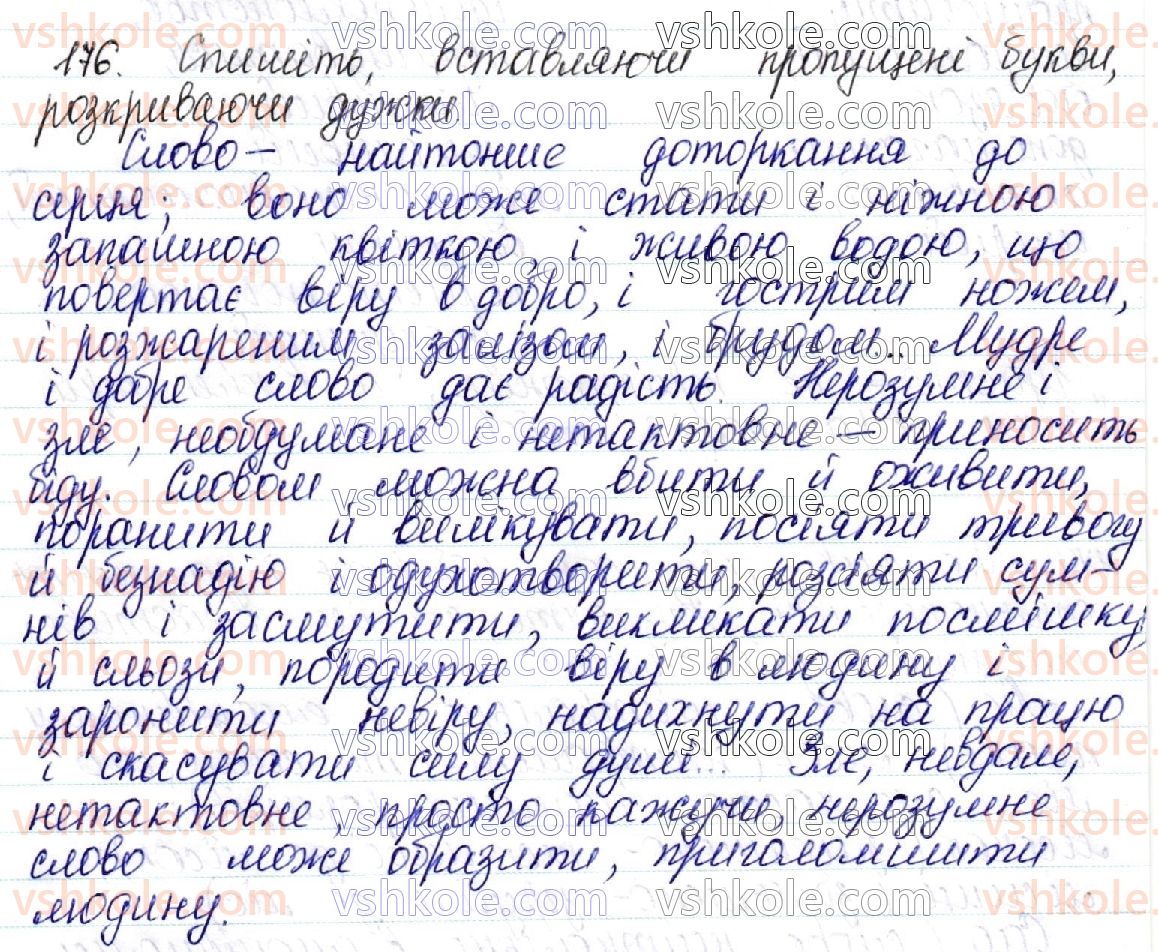 176. Спишіть, вставляючи пропущені букви,
розкриваючи дужки.
Слово – найтонше доторкання до
серця; воно може стати і ніжною
запашною квіткою, і живою водою, що
повертає віру в добро, і гострим ножем,
і розжареним залізом, і брудом... Мудре
і добре слово дає радість. Нерозумне і
зле, необдумане і нетактовне – приносить
біду. Словом можна вбити й оживити,
поранити й вилікувати, посіяти тривогу
й безнадію і одухотворити, розсіяти сум-
нів і засмутити, викликати посмішку
й сльози, породити віру в людину і
заронити невіру, надихнути на працю
і скасувати силу душі... Зле, невдале,
нетактовне, просто кажучи, нерозумне
слово може образити, приголомшити
людину.